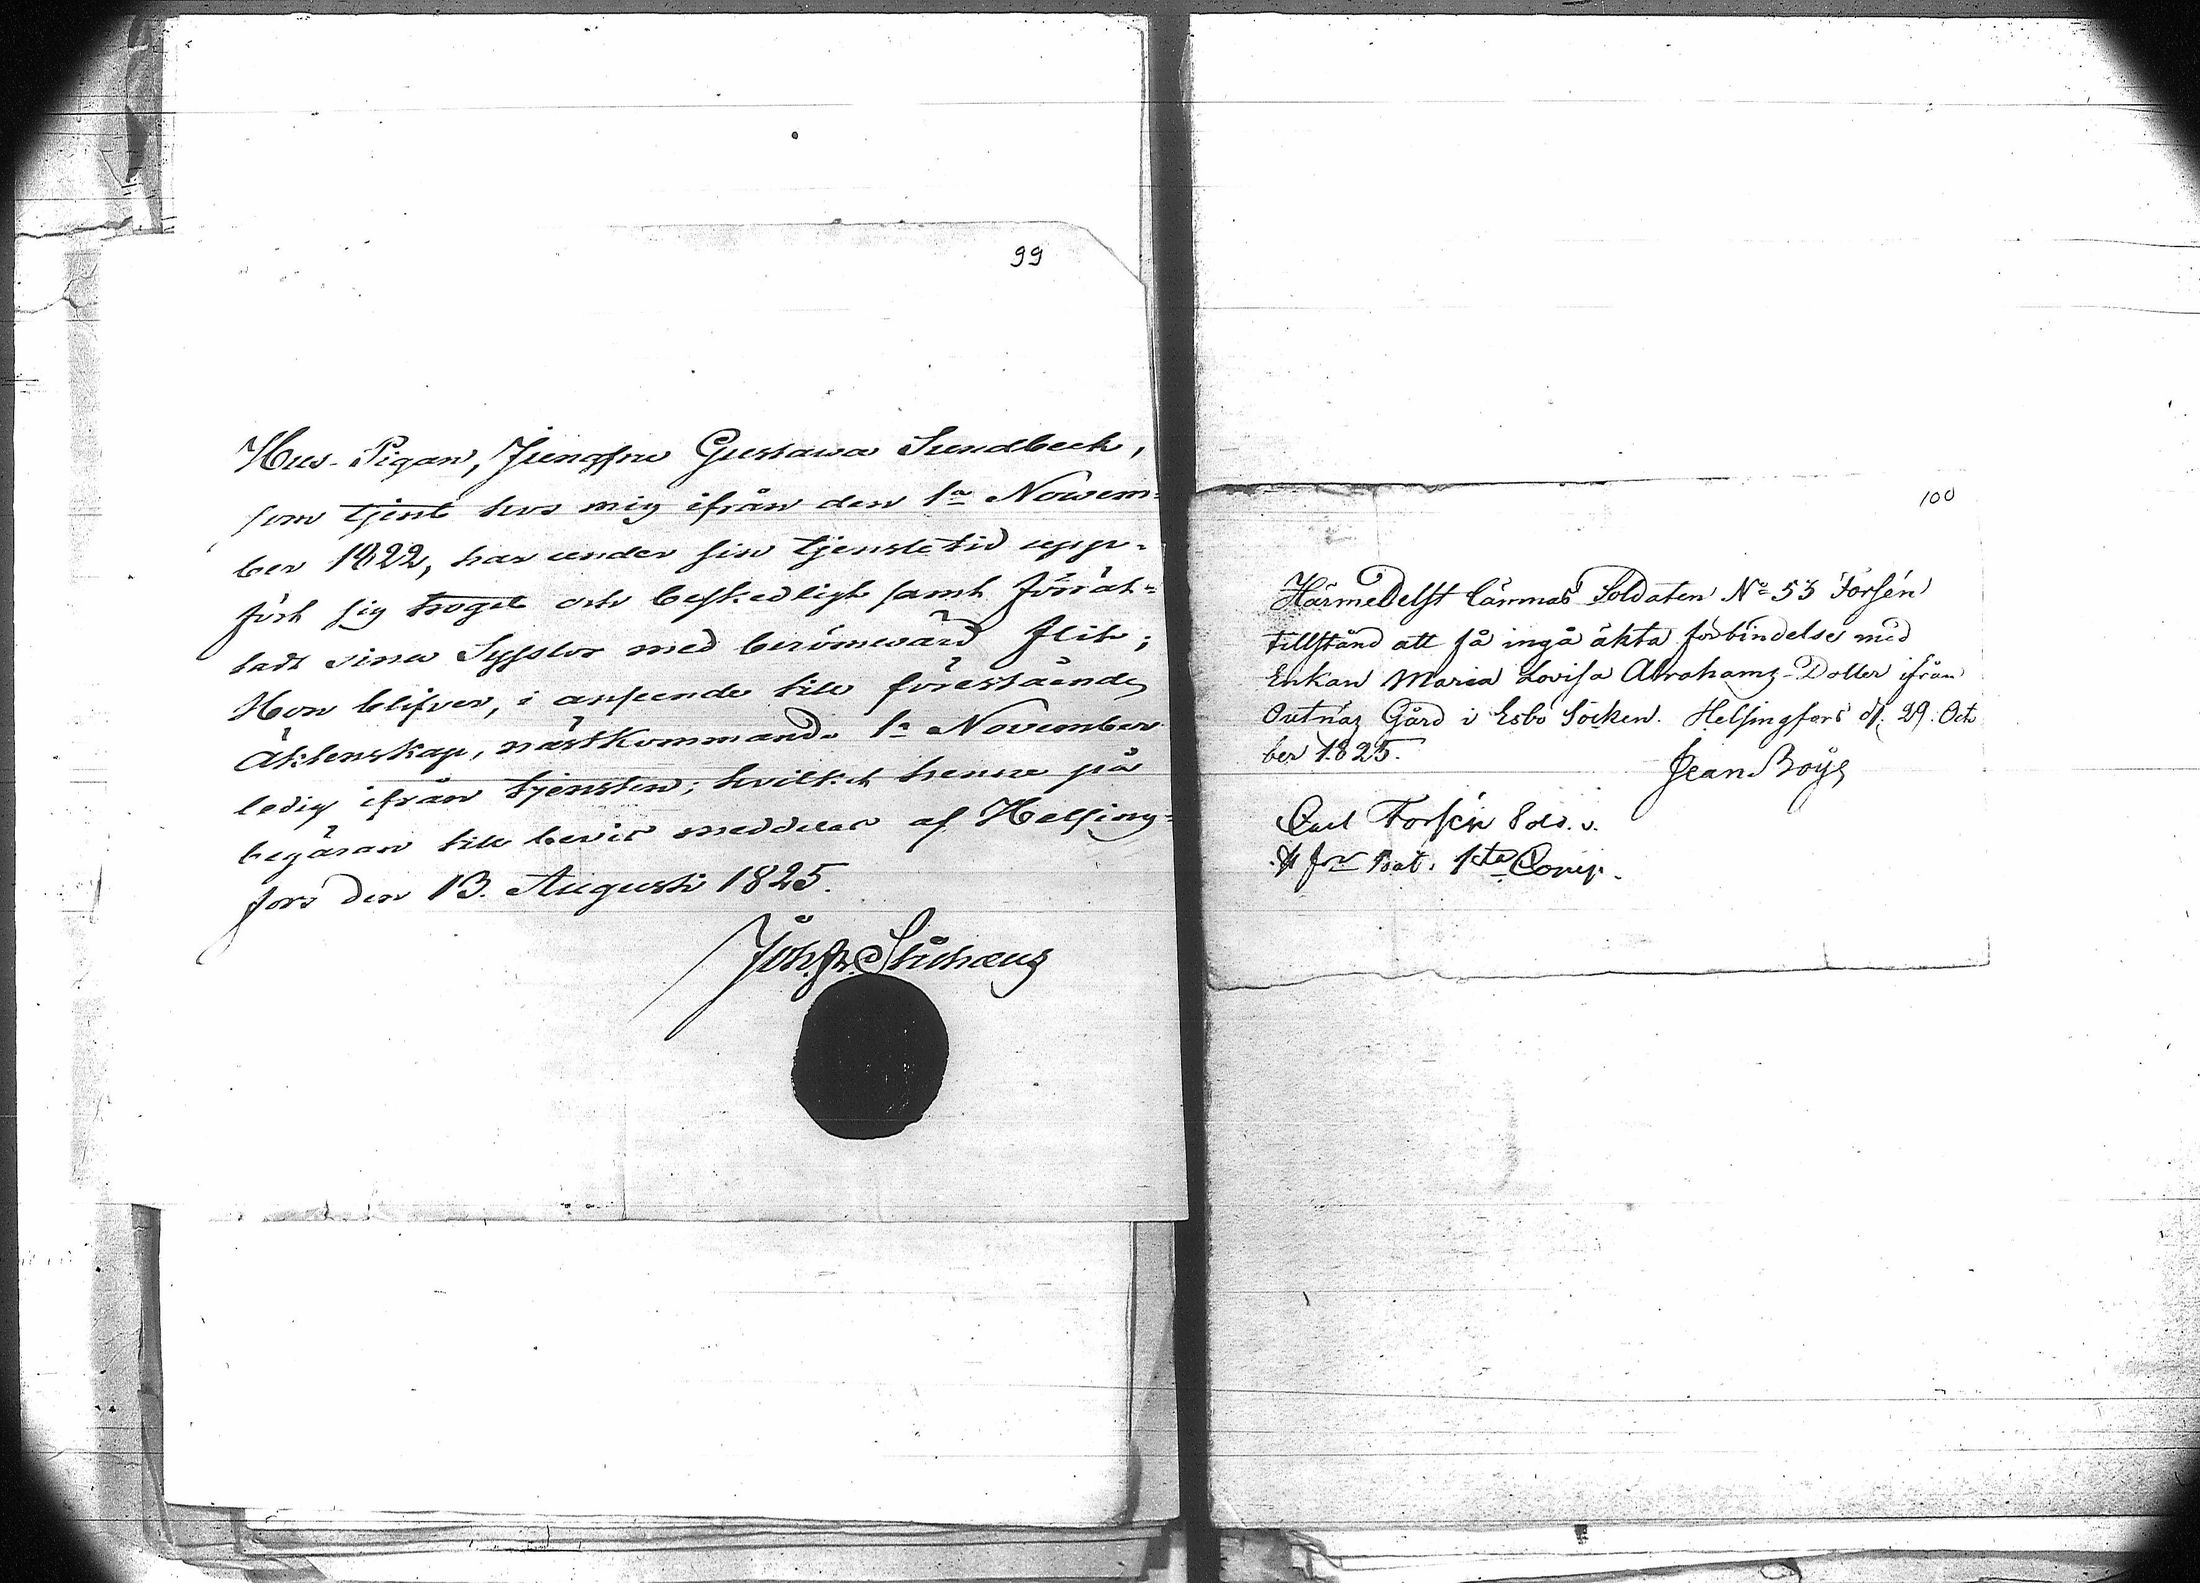 99
Hus-Pigan, Jungfru Gustawa Sundbeck,
som tjent hos mig ifrån den 1a Nowem-
ber 1822, har under sin tjenstetid upp-
fört sig troget och beskedligt samt förrät-
tadt sina Sysslor med berömwärd flit;
Hon blifver, i anseende till förestående
Äktenskap, nästkommande 1a November
ledig ifrån tjensten; hvilket henne på
begäran till bevis meddelas af Helsing-
fors den 13. Augusti 1825.
100
Härmedelst lämnas Soldaten No 53 Forsén
tillstånd att få ingå äkta förbindelse med
Enkan Maria Lovisa Abrahams-Dotter ifrån
Outnäs Gård i Esbo Socken. Helsingfors d. 29. Octo
ber 1825.
Jean Boije
Carl Forsén Sold. v.
Bat. 1sta Comp.